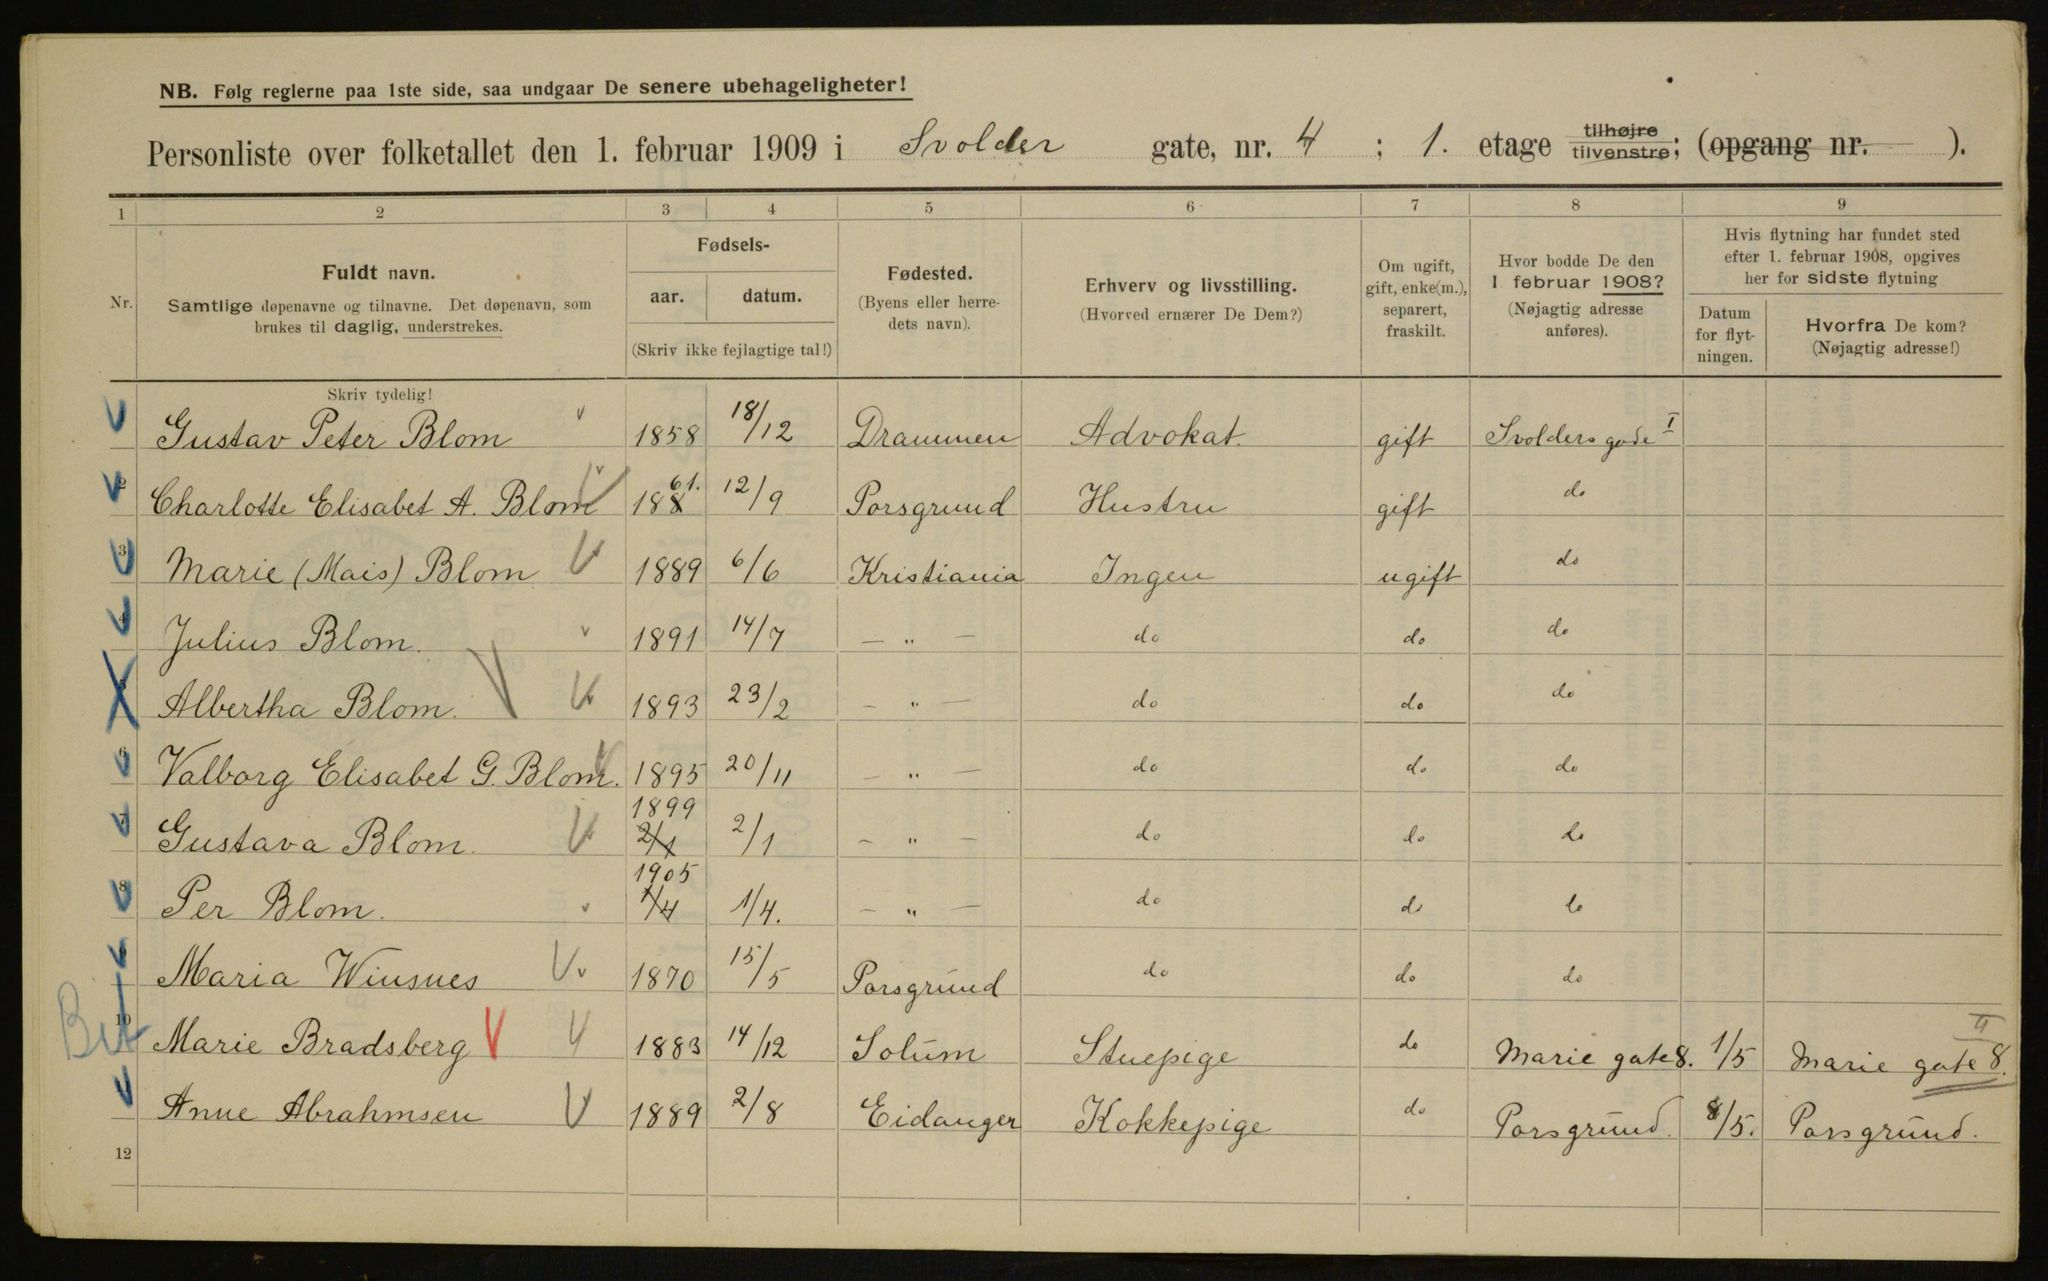 NB. Følg reglerne paa 1ste side, saa undgaar De senere ubehageligheter!
Personliste over folketallet den 1. februar 1909 i Svolder gate, nr. 4 ; 1. etage tilhøjre tilvenstre; (opgang nr. ).
1 2 3 4 5 6 7 8 9
Nr.
Fuldt navn.
Samtlige døpenavne og tilnavne. Det døpenavn, som
brukes til daglig, understrekes.
Fødsels-
aar. datum.
(Skriv ikke fejlagtige tal!)
Fødested.
(Byens eller herre-
dets navn).
Erhverv og livsstilling.
(Hvorved ernærer De Dem?)
Om ugift,
gift, enke(m.),
separert,
fraskilt.
Hvor bodde De den
1 februar 1908?
(Nøjagtig adresse
anføres).
Hvis flytning har fundet sted
efter 1. februar 1908, opgives
her for sidste flytning
Datum
for flyt-
ningen.
Hvorfra De kom?
(Nøjagtig adresse!)
Skriv tydelig!
Gustav Peter Blom 1858 18/12 Drammen Advokat. gift Svolders gade I
2 Charlotte Elisabet A. Blom 188 61. 12/9 Porsgrund Hustru gift do
3 Marie (Mais) Blom 1889 6/6 Kristiania Ingen ugift do
4 Julius Blom. 1891 14/7 — " — do do do
5 Albertha Blom. 1893 23/2 — " — do do do
6 Valborg Elisabet G. Blom. 1895 20/11 — " — do do do
7 Gustava Blom. 1899 2/1 2/1 — " — do do do
8 Per Blom. 1905 1/4 1/4. — " — do do do
9 Maria Winsnes 1870 15/5 Porsgrund do do do
Bet 10 Marie Bradsberg 1883 14/12 Solum Stuepige do Marie gate 8. 1/5 Marie gate 8. II
Anne Abrahmsen 1889 2/8 Eidanger Kokkepige do Porsgrund. 8/5. Porsgrund.
12